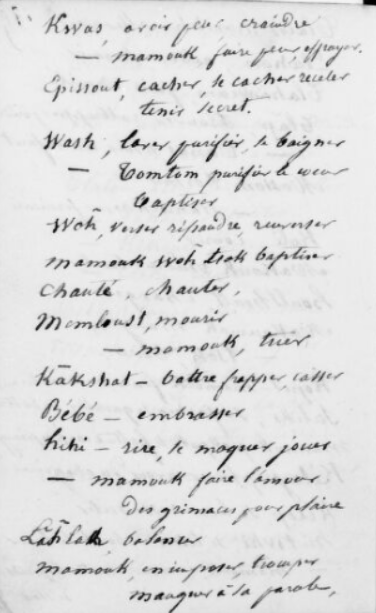 Kwas, avoir peur craindre
— mamouk faire peur effrayer.
Epissout, cacher, se cacher receler
tenir secret.
Wash, laver purifier, se baigner
— Tomtom purifier le cœur
baptiser
Woh, verser répandre, renverser
mamouk woh tsok baptiser
Chanté chanter.
Memloust, mourir
— mamouk, tuer
Kākshat — battre frapper, casser
Bébé — embrasser
hihi — rire, se moquer jouer
— mamouk faire l'amour
des grimaces pour plaire
balancer
mamouk, en imposer, tromper
manquer à sa parole,